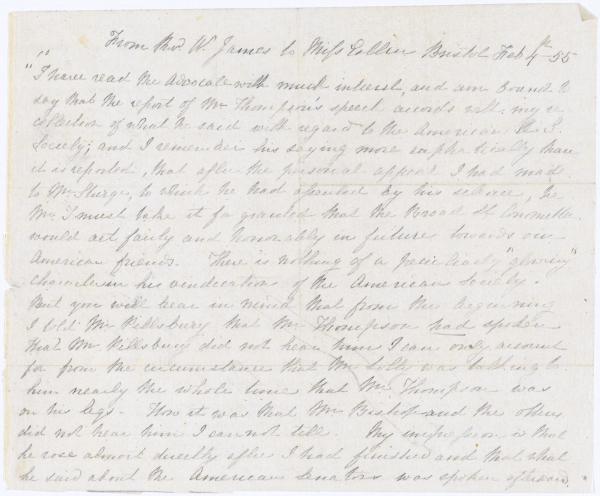 From Rev. W. James to Miss Estlin Bristol Feb 4th 55
"I have read the Advocate with much interest, and am bound to
say that the report of Mr Thompson's speech accords with my re
collection of what he said with regard to the American A. S.
Society; and I remember his saying more emphatically than
it is reported, that after the personal appeal I had made
to Mr Sturge, to which he had assented by his silence, he
Mr T must take it for granted that the Broad St Committee
would act fairly and honorably in future towards our
American friends. There is nothing of a peculiarly "glowing"
character in his vindication of the American Society.
But you will bear in mind that from the beginning
I told Mr Pillsbury that Mr Thompson had spoken
That Mr Pillsbury did not hear him I can only account
for from the circumstance that Mr was talking to
him nearly the whole time that Mr Thompson was
on his legs. How it was that Mr Bishop and the others
did not hear him I cannot tell. My impression is that
he rose almost directly after I had finished and that what
he said about the American Senators was spoken afterward.